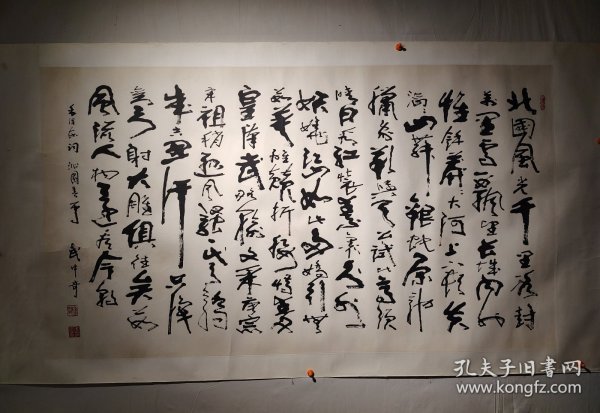 北国风光千里冰封
万里雪飘望长城内外
惟余莽大河上下顿失
滔山舞银蛇原驰
蜡象欲与天公试比高须
晴日看红装素裹分外
妖娆江山如此多娇引无
数英雄竞折腰惜秦
皇汉武略输文采唐宗
宋祖稍逊风骚一代天骄
成吉思汗只识
弯弓射大雕俱往矣数
风流人物还看今朝
毛主席词 沁园春雪 武中奇
孔夫子旧书网
www.kongfz.com